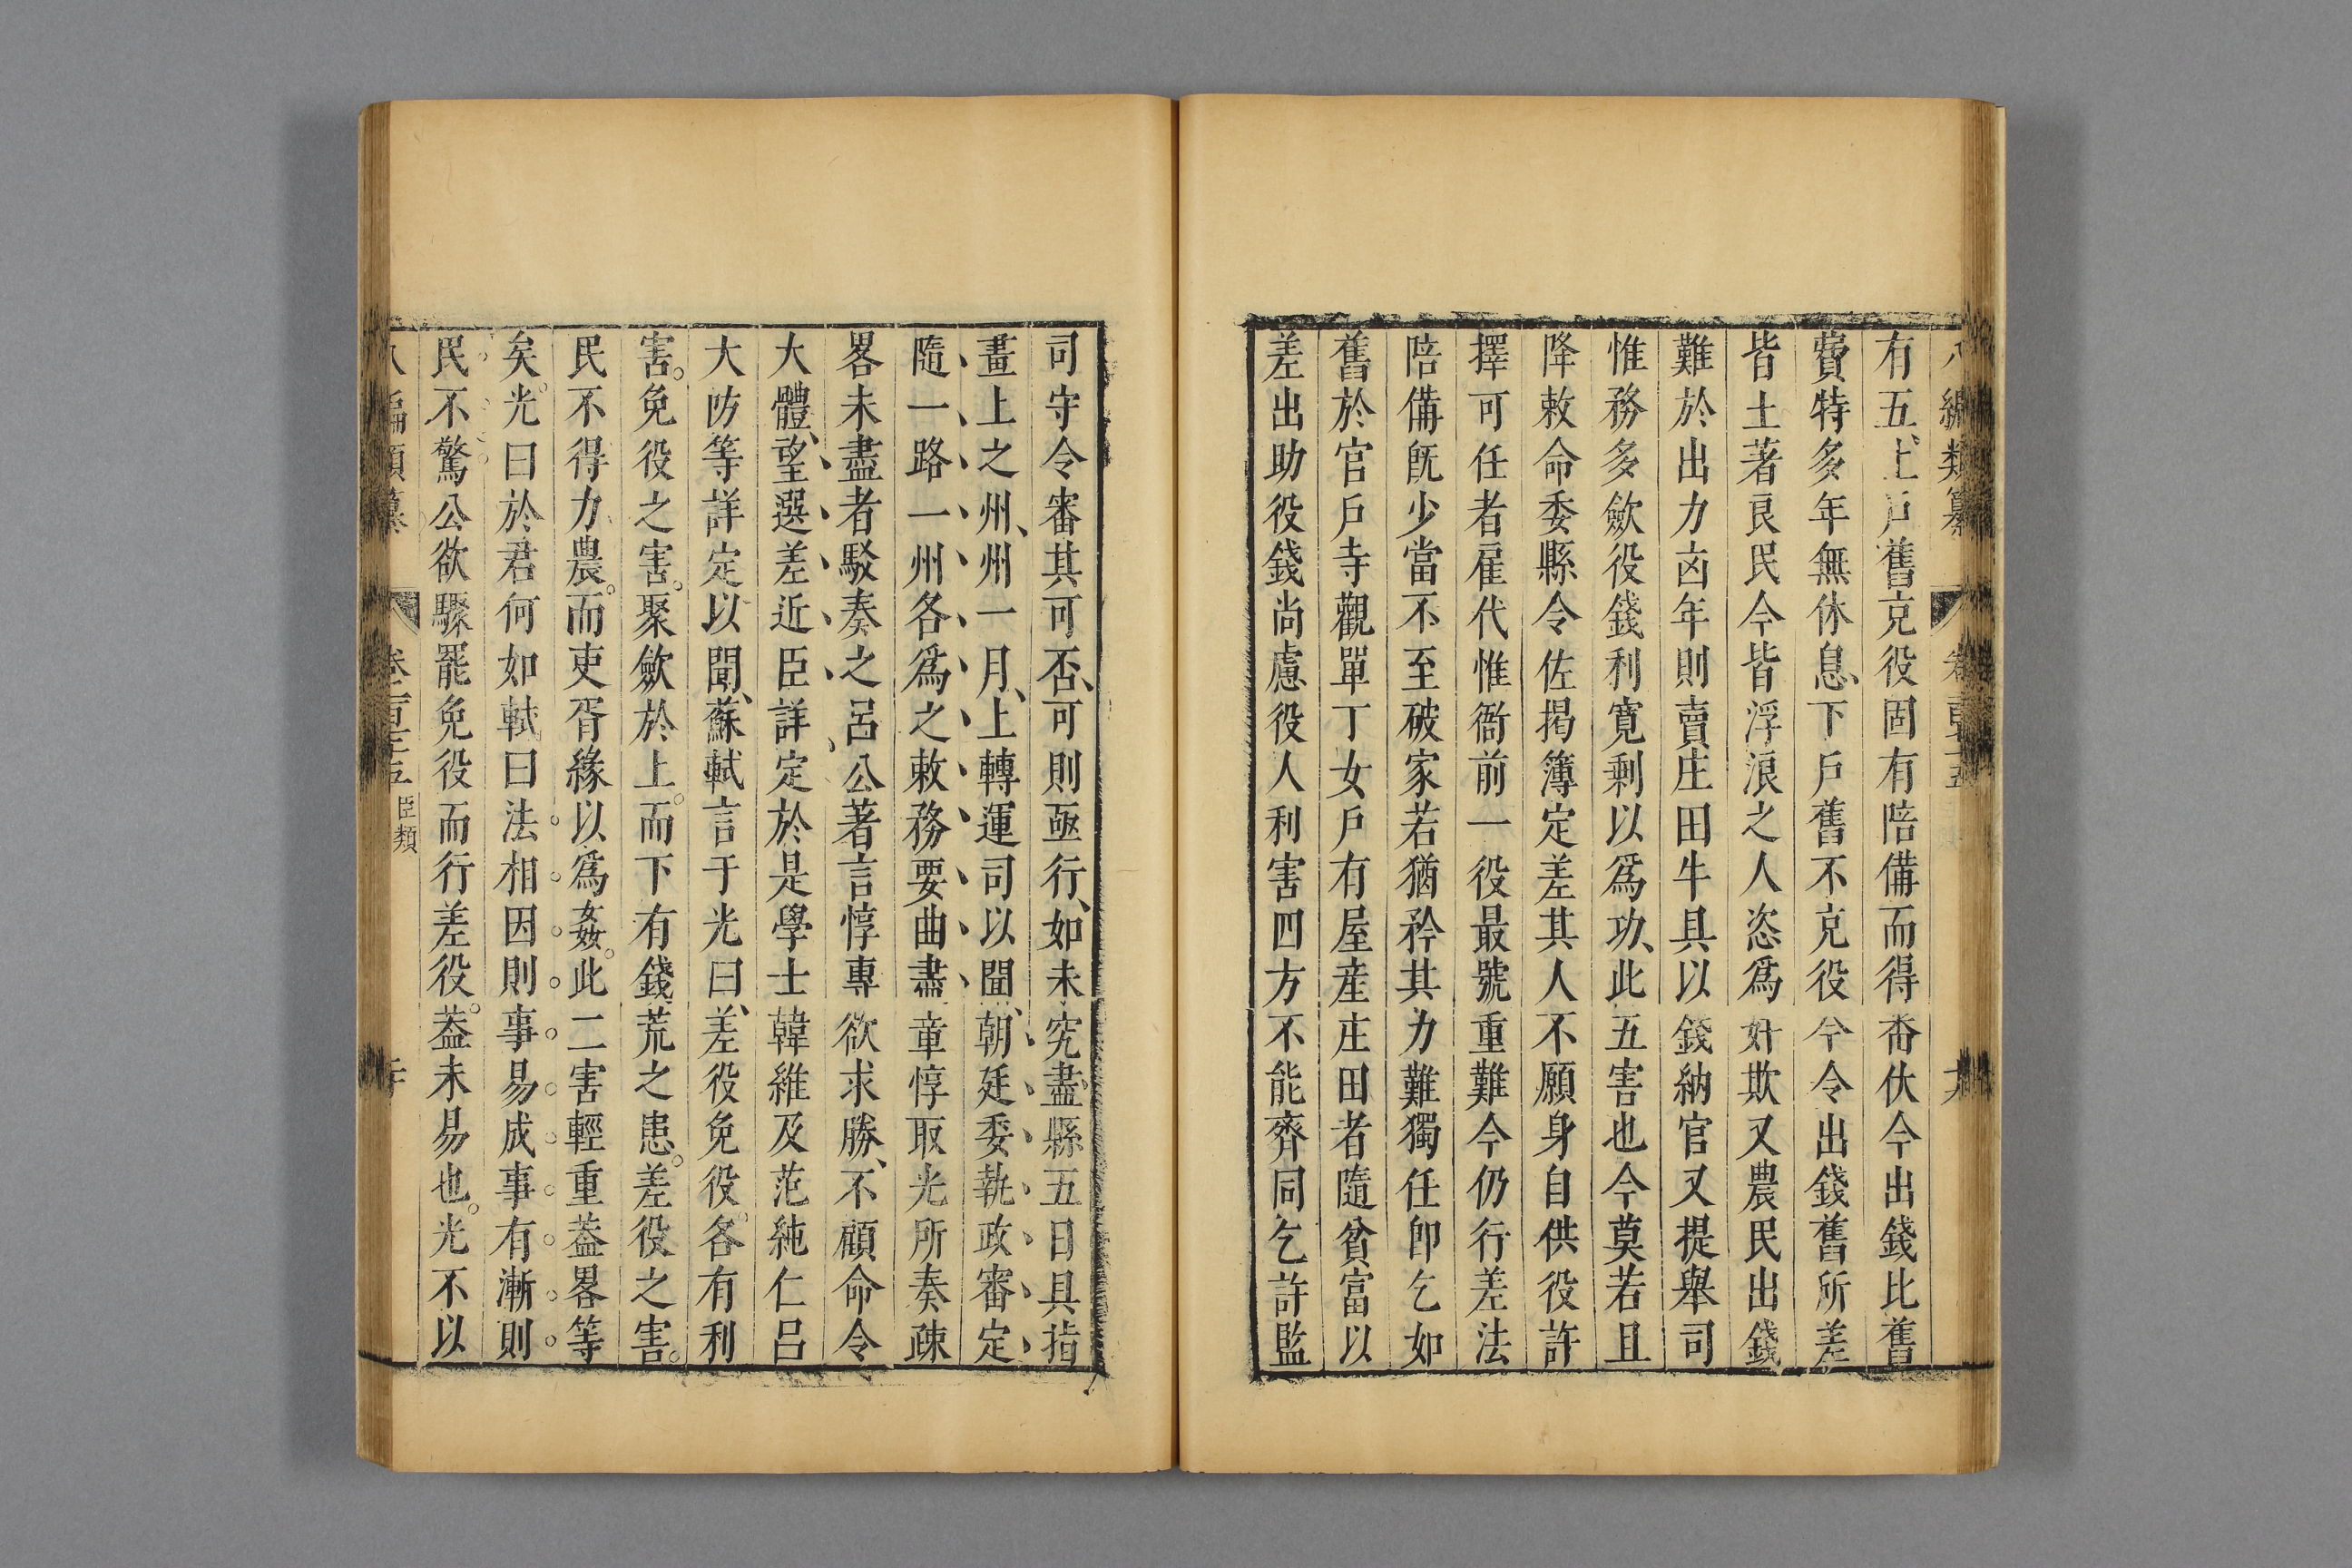 八編類纂　卷百三十五　十九
有五上戶舊充役固有陪備而得番休今出錢比舊
費特多年無休息下戶舊不充役今令出錢舊所差
皆土著良民今皆浮浪之人恣爲奸欺又農民出錢
難於出力凶年則賣庄田牛具以錢納官又提舉司
惟務多歛役錢利寬剩以爲功此五害也今莫若且
降敕命委縣令佐揭簿定差其人不願身自供役許
擇可任者雇代惟衙前一役最號重難今仍行差法
陪備旣少當不至破家若猶矜其力難獨任卽乞如
舊於官戶寺觀單丁女戶有屋産庄田者隨貧富以
差出助役錢尚慮役人利害四方不能齊同乞許監
司守令審其可否可則亟行如未究盡縣五日具指
畫上之州州一月上轉運司以聞朝廷委執政審定
隨一路一州各爲之敕務要曲盡章惇取光所奏疎
畧未盡者駁奏之呂公著言惇專欲求勝不顧命令
大體望選差近臣詳定於是學士韓維及范純仁呂
大防等詳定以聞蘇軾言于光曰差役免役各有利
害免役之害聚歛於上而下有錢荒之患差役之害
民不得力農而吏胥緣以爲姦此二害輕重葢畧等
矣光曰於君何如軾曰法相因則事易成事有漸則
民不驚公欲驟罷免役而行差役葢未易也光不以
八編類纂　卷百三十五　臣類　二十